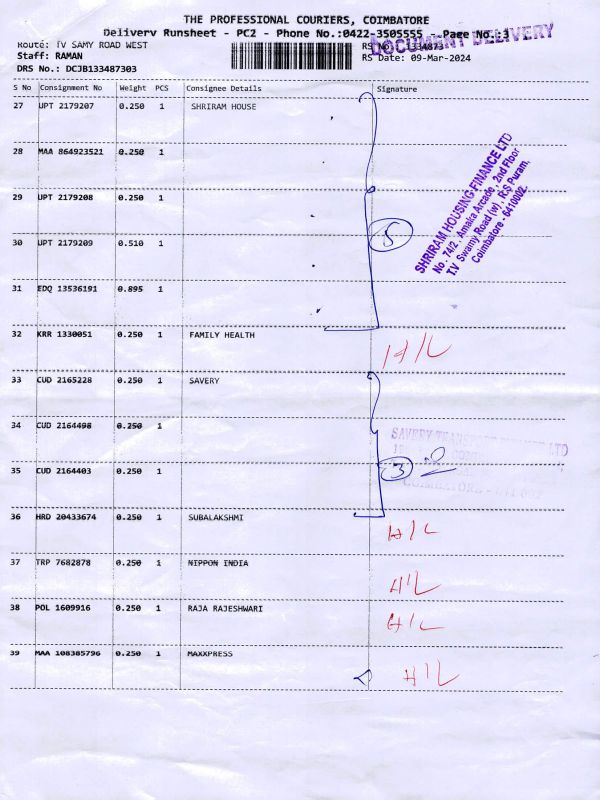 THE PROFESSIONAL COURIERS, COIMBATORE
Delivery Runsheet - PC2 - Phone No.:0422-3505555 Page No.:3
DOCUMENT DELIVERY
Route: TV SAMY ROAD WEST
RS No.: 1334873
Staff: RAMAN
RS Date: 09-Mar-2024
DRS No.: DCJB133487303
S No Consignment No Weight PCS Consignee Details Signature
27 UPT 2179207 0.250 1 SHRIRAM HOUSE
28 MAA 864923521 0.250 1
29 UPT 2179208 0.250 1
30 UPT 2179209 0.510 1
31 EDQ 13536191 0.895 1
5
SHRIRAM HOUSING FINANCE LTD
No. 74/2, Amaka Arcade, 2nd Floor
T.V Swamy Road (w), R.S Puram,
Coimbatore - 6410002.
32 KRR 1330051 0.250 1 FAMILY HEALTH
33 CUD 2165228 0.250 1 SAVERY
34 CUD 2164498 0.250 1
35 CUD 2164403 0.250 1
3
SAVERY
LTD
COIMBATORE
36 HRD 20433674 0.250 1 SUBALAKSHMI
37 TRP 7682878 0.250 1 NIPPON INDIA
38 POL 1609916 0.250 1 RAJA RAJESHWARI
39 MAA 108385796 0.250 1 MAXXPRESS